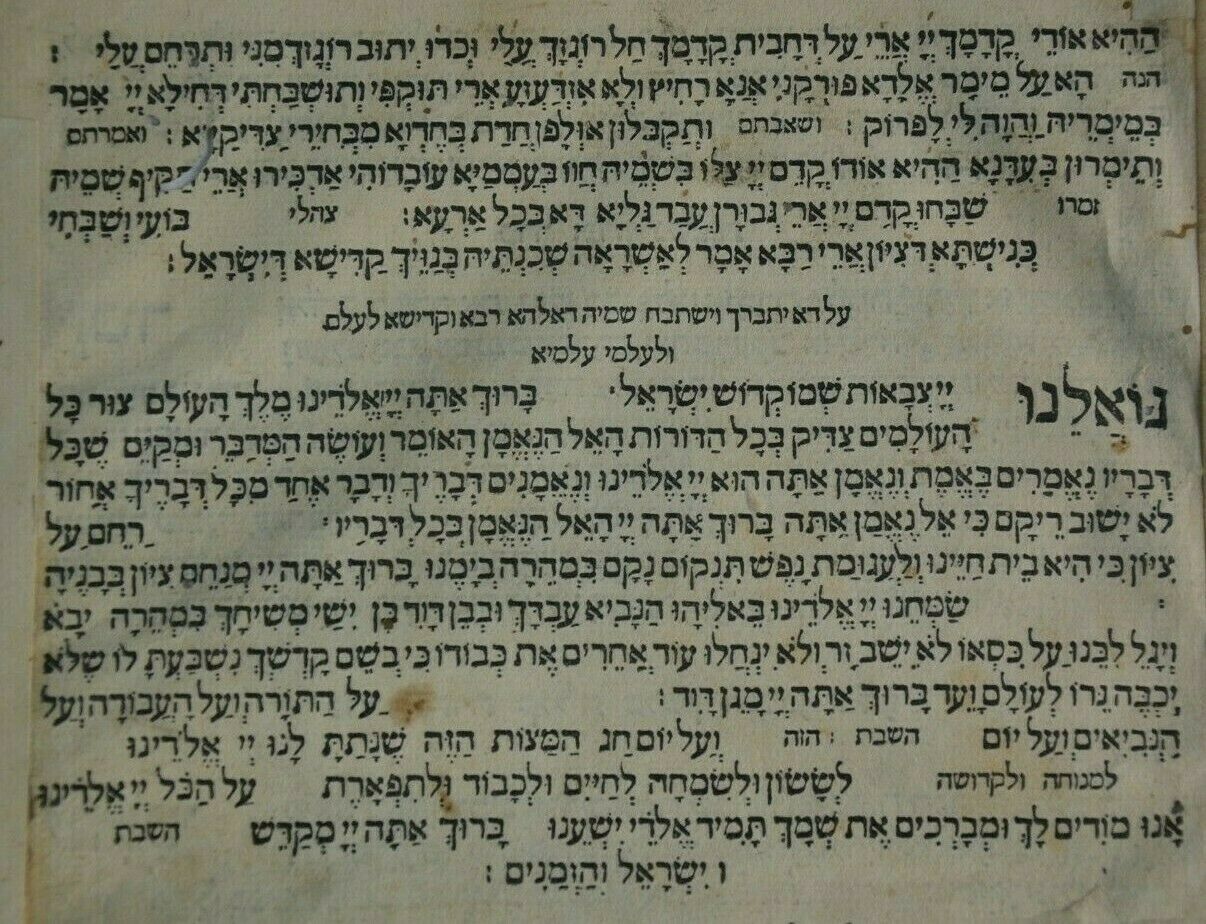 הַהִיא אוֹרֵי קֳדָמָךְ יְיָ אֲרֵי עַל דְּחָבִית קֳדָמָךְ חַל רוּגְזָךְ עֲלַי וּכְדוּ יְתוּב רוּגְזָךְ מִנִּי וּתְרַחֵם עֲלַי :
הנה הָא עַל מֵימַר אֱלָהָא פּוּרְקָנִי אֲנָא רָחִיץ וְלָא אִזְדַּעְזַע אֲרֵי תּוּקְפִּי וְתוּשְׁבַּחְתִּי דְּחִילָא יְיָ אֲמַר
בְּמֵימְרֵיהּ וַהֲוָה לִי לְפָרוֹק : ושאבתם וּתְקַבְּלוּן אוּלְפַן חֲדַת בְּחֶדְוָא מִבְּחִירֵי צַדִּיקַיָּא : ואמרתם
וְתֵימְרוּן בְּעִדָּנָא הַהִיא אוֹדוּ קֳדָם יְיָ צַלּוֹ בִּשְׁמֵיהּ חֲווֹ בְּעַמְמַיָּא עוֹבָדוֹהִי אַדְכִּירוּ אֲרֵי תַּקִּיף שְׁמֵיהּ
זמרו שַׁבָּחוּ קֳדָם יְיָ אֲרֵי גְבוּרָן עֲבַד גַּלְיָא דָּא בְּכָל אַרְעָא : צהלי בּוּעִי וְשַׁבְּחִי
כְּנִישְׁתָּא דְצִיּוֹן אֲרֵי רַבָּא אֲמַר לְאַשְׁרָאָה שְׁכִנְתֵּיהּ בְּגַוֵּיךְ קַדִּישָׁא דְיִשְׂרָאֵל :
על דא יתברך וישתבח שמיה דאלהא רבא וקדישא לעלם
ולעלמי עלמיא
גּוֹאֲלֵנוּ יְיָ צְבָאוֹת שְׁמוֹ קְדוֹשׁ יִשְׂרָאֵל : בָּרוּךְ אַתָּה יְיָ אֱלֹדֵינוּ מֶלֶךְ הָעוֹלָם צוּר כָּל
הָעוֹלָמִים צַדִּיק בְּכָל הַדּוֹרוֹת הָאֵל הַנֶּאֱמָן הָאוֹמֵר וְעוֹשֶׂה הַמְדַבֵּר וּמְקַיֵּם שֶׁכָּל
דְּבָרָיו נֶאֱמָרִים בֶּאֱמֶת וְנֶאֱמָן אַתָּה הוּא יְיָ אֱלֹדֵינוּ וְנֶאֱמָנִים דְּבָרֶיךָ וְדָבָר אֶחָד מִכָּל דְּבָרֶיךָ אָחוֹר
לֹא יָשׁוּב רֵיקָם כִּי אֵל נֶאֱמָן אַתָּה בָּרוּךְ אַתָּה יְיָ הָאֵל הַנֶּאֱמָן בְּכָל דְּבָרָיו : רַחֵם עַל
צִיּוֹן כִּי הִיא בֵית חַיֵּינוּ וְלַעֲגוּמַת נֶפֶשׁ תִּנְקוֹם נָקָם בִּמְהֵרָה בְיָמֵנוּ בָּרוּךְ אַתָּה יְיָ מְנַחֵם צִיּוֹן בְּבָנֶיהָ
: שַׂמְּחֵנוּ יְיָ אֱלֹדֵינוּ בְּאֵלִיָּהוּ הַנָּבִיא עַבְדָּךְ וּבְבֶן דָּוִד בֶּן יִשַׁי מְשִׁיחָךְ בִּמְהֵרָה יָבֹא
וְיָגֵל לִבֵּנוּ עַל כִּסְאוֹ לֹא יֵשֵׁב זָר וְלֹא יִנְחֲלוּ עוֹד אֲחֵרִים אֶת כְּבוֹדוֹ כִּי בְשֵׁם קָדְשְׁךָ נִשְׁבַּעְתָּ לוֹ שֶׁלֹּא
יִכְבֶּה נֵרוֹ לְעוֹלָם וָעֶד בָּרוּךְ אַתָּה יְיָ מָגֵן דָּוִד : עַל הַתּוֹרָה וְעַל הָעֲבוֹדָה וְעַל
הַנְּבִיאִים וְעַל יוֹם השבת : הזה וְעַל יוֹם חַג הַמַּצּוֹת הַזֶּה שֶׁנָּתַתָּ לָּנוּ יְיָ אֱלֹדֵינוּ
למנוחה ולקדושה לְשָׂשׂוֹן וּלְשִׂמְחָה לְחַיִּים וּלְכָבוֹד וּלְתִפְאָרֶת עַל הַכֹּל יְיָ אֱלֹדֵינוּ
אָנוּ מוֹדִים לָךְ וּמְבָרְכִים אֶת שְׁמָךְ תָּמִיד אֱלֹדֵי יִשְׁעֵנוּ בָּרוּךְ אַתָּה יְיָ מְקַדֵּשׁ השבת
וְיִשְׂרָאֵל וְהַזְּמַנִּים :